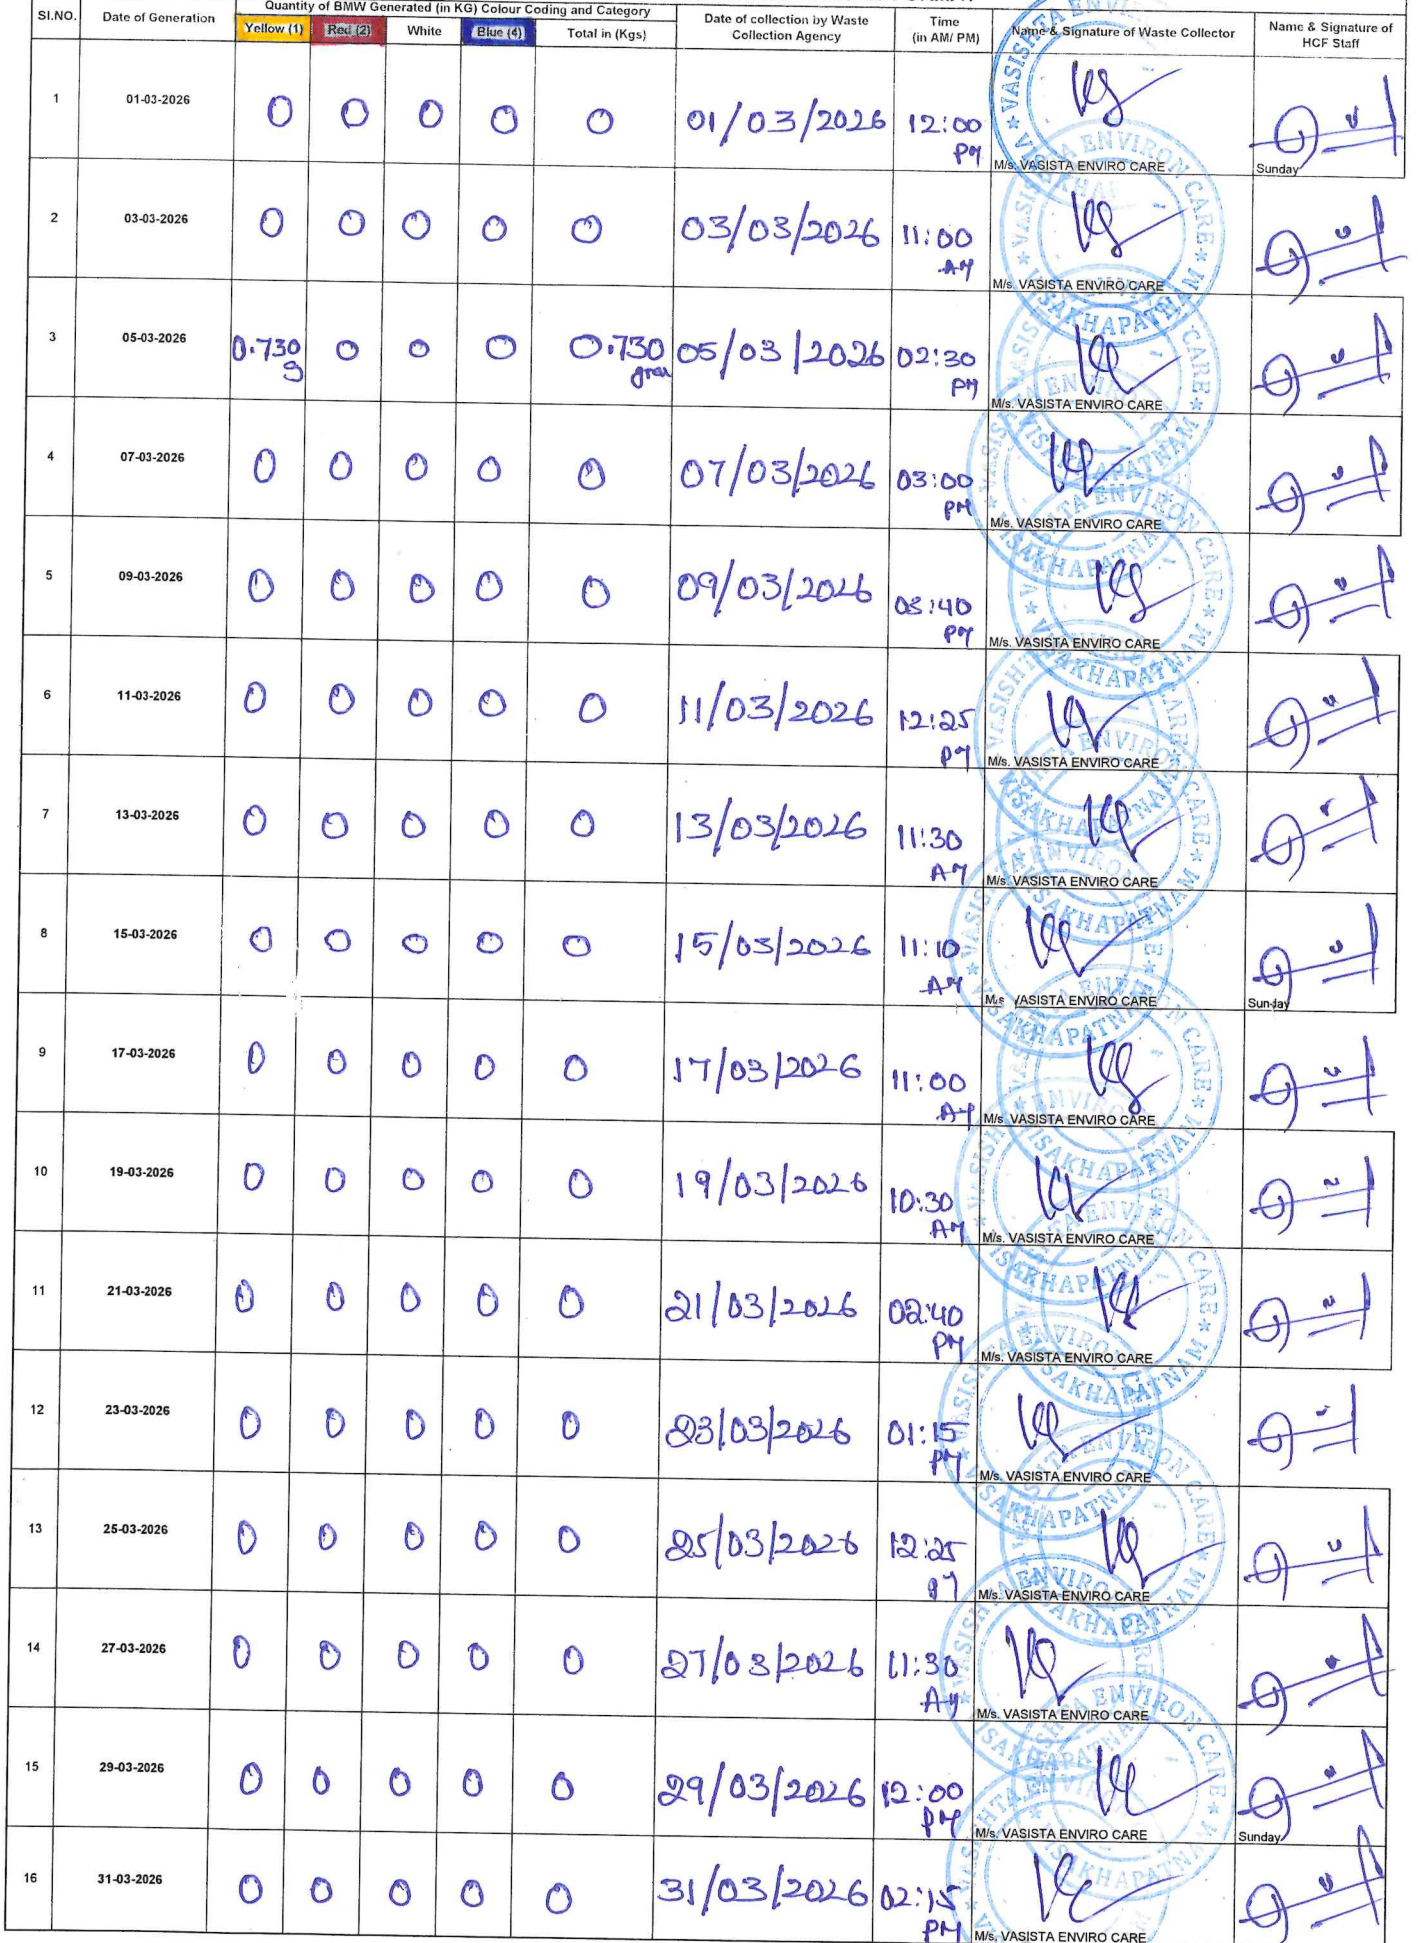 Quantity of BMW Generated (in KG) Colour Coding and Category
SI.NO. Date of Generation Yellow (1) Red (2) White Blue (4) Total in (Kgs) Date of collection by Waste Collection Agency Time (in AM/ PM) Name & Signature of Waste Collector Name & Signature of HCF Staff
1 01-03-2026 0 0 0 0 0 01/03/2026 12:00 PM
M/s. VASISTA ENVIRO CARE Sunday
2 03-03-2026 0 0 0 0 0 03/03/2026 11:00 AM
M/s. VASISTA ENVIRO CARE
3 05-03-2026 0.730 g 0 0 0 0.730 05/03/2026 02:30 PM
M/s. VASISTA ENVIRO CARE
4 07-03-2026 0 0 0 0 0 07/03/2026 03:00 PM
M/s. VASISTA ENVIRO CARE
5 09-03-2026 0 0 0 0 0 09/03/2026 03:40 PM
M/s. VASISTA ENVIRO CARE
6 11-03-2026 0 0 0 0 0 11/03/2026 12:25 PM
M/s. VASISTA ENVIRO CARE
7 13-03-2026 0 0 0 0 0 13/03/2026 11:30 AM
M/s. VASISTA ENVIRO CARE
8 15-03-2026 0 0 0 0 0 15/03/2026 11:10 AM
M/s VASISTA ENVIRO CARE Sunday
9 17-03-2026 0 0 0 0 0 17/03/2026 11:00 AM
M/s. VASISTA ENVIRO CARE
10 19-03-2026 0 0 0 0 0 19/03/2026 10:30 AM
M/s. VASISTA ENVIRO CARE
11 21-03-2026 0 0 0 0 0 21/03/2026 02:40 PM
M/s. VASISTA ENVIRO CARE
12 23-03-2026 0 0 0 0 0 23/03/2026 01:15 PM
M/s. VASISTA ENVIRO CARE
13 25-03-2026 0 0 0 0 0 25/03/2026 12:25 PM
M/s. VASISTA ENVIRO CARE
14 27-03-2026 0 0 0 0 0 27/03/2026 11:30 AM
M/s. VASISTA ENVIRO CARE
15 29-03-2026 0 0 0 0 0 29/03/2026 12:00 PM
M/s. VASISTA ENVIRO CARE Sunday
16 31-03-2026 0 0 0 0 0 31/03/2026 02:15 PM
M/s. VASISTA ENVIRO CARE
VASISHTA ENVIRON CARE VISAKHAPATNAM